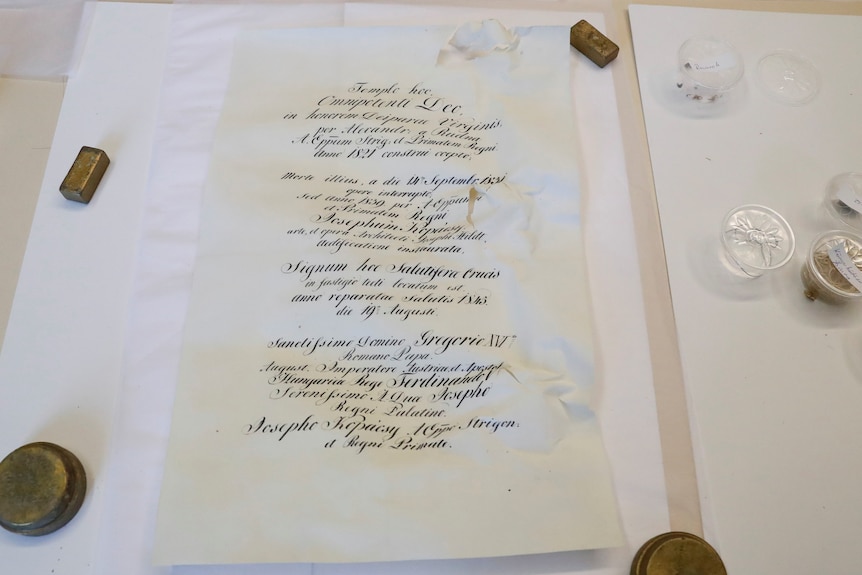 Templo hoc
Omnipotenti Deo,
in honorem Deiparae Virginis
per Alexandr. a Rudna
A. Eppum Strig. et Primatem Regni
anno 1821 construi coepto,
Morte illius, a die 14ª Septembr 1831
opere interrupto,
Sed anno 1839 per A. Eppum
et Primatem Regni
Josephum Kopácsy
arte, et opera Architecti Josephi Hildt,
aedificatione instaurata,
Signum hoc Salutiferae Crucis
in fastigio tecti locatum est
anno reparatae Salutis 1845
die 19ª Augusti.
Sanctissimo Domino Gregorio XVIº
Romano Papa.
August. Imperatore Austriae, et Apostol.
Hungariae Rege Ferdinando
Serenissimo A. Duce Josepho
Regni Palatino.
Josepho Kopácsy A. Eppo Strigon.
et Regni Primate.